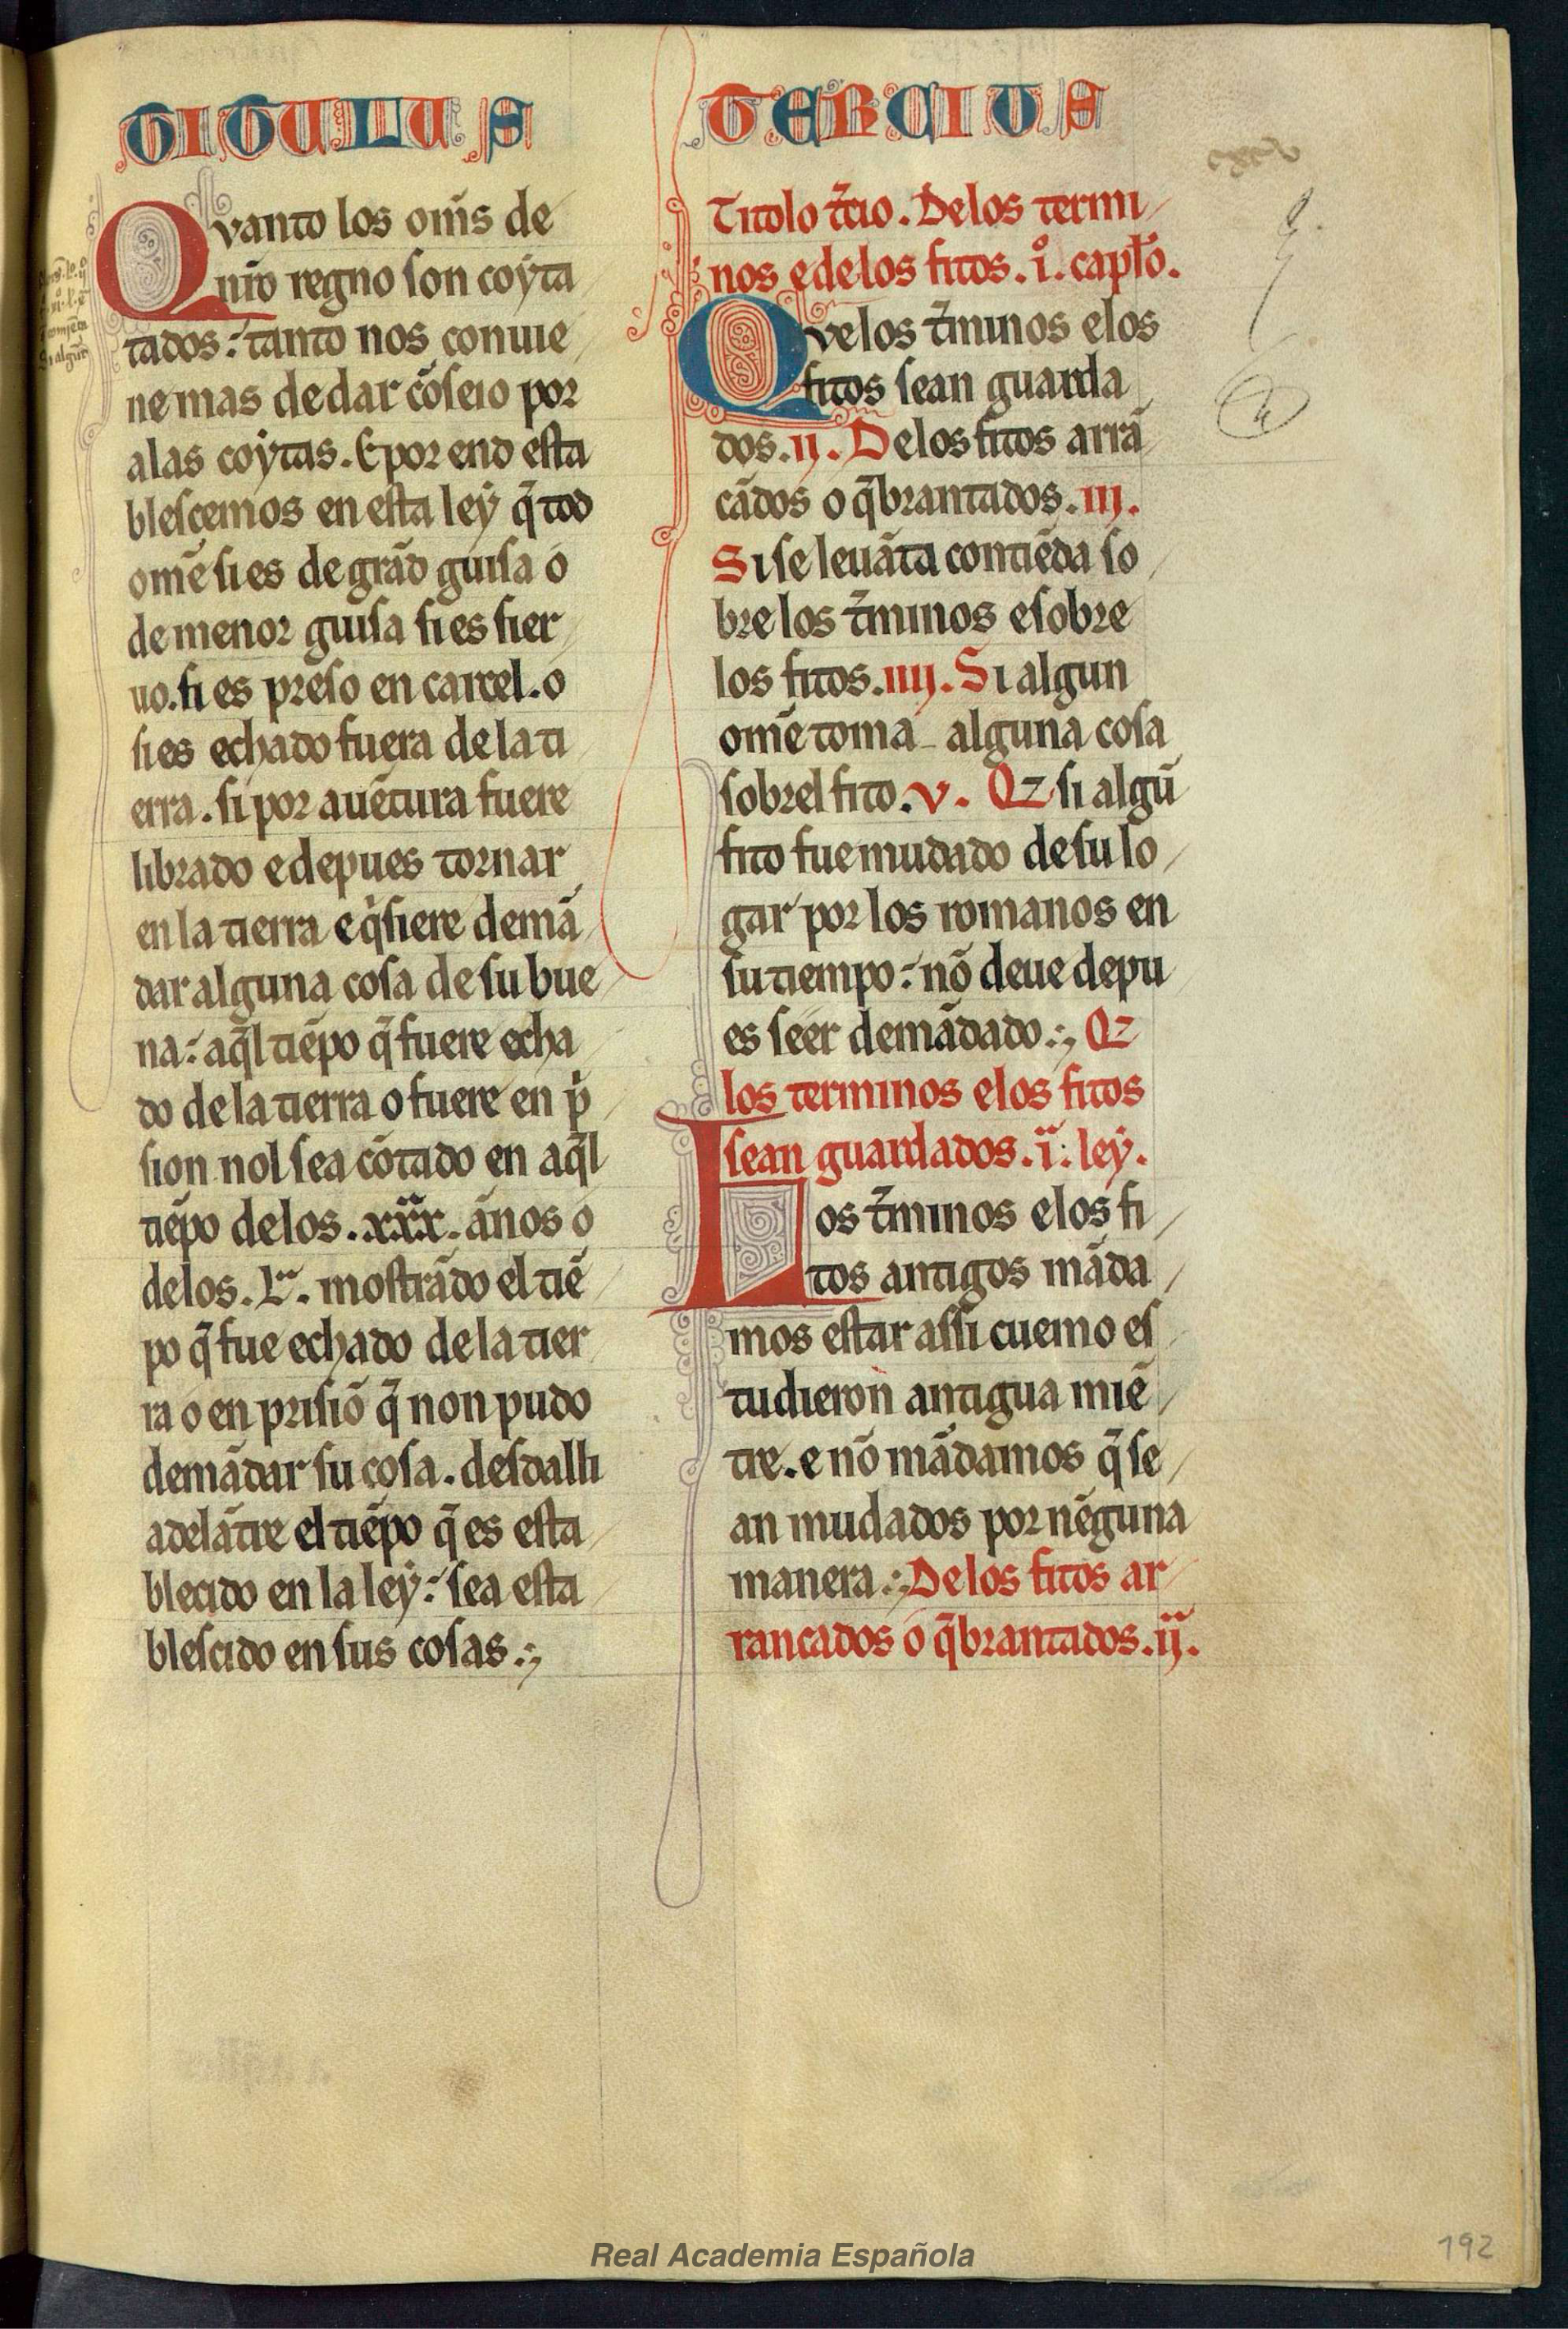 TITULUS
Qvanto los om̄s de
nr̄o regno son coẏta
tados: tanto nos conuie
ne mas de dar cōseio por
a las coẏtas. E por end esta
blescemos en esta leẏ q̄ tod
omē si es de grād guisa o
de menor guisa si es sier
uo. si es preso en carcel. o
si es echado fuera de la ti
erra. si por auētura fuere
librado e depues tornar
en la tierra e qͥsiere demā
dar alguna cosa de su bue
na: aq̄l tiēpo q̄ fuere echa
do de la tierra o fuere en pͥ
sion nol sea cōtado en aq̄l
tiēpo de los .xxx. ānos o
de los .L. mostrādo el tiē
po q̄ fue echado de la tier
ra o en prisiō q̄ non pudo
demādar su cosa. desdalli
adelātre el tiēpo q̄ es esta
blecido en la leẏ: sea esta
blescido en sus cosas.
TERCIUS
Titolo t̄cio. De los termi
nos e de los fitos. i. capto.
Qve los t̄minos e los
fitos sean guarda
dos. ij. De los fitos arrā
cādos o q̄brantados. iij.
Si se leuāta contiēda so
bre los t̄minos e sobre
los fitos. iiij. Si algun
omē toma alguna cosa
sobrel fito. v. Qz si algū
fito fue mudado de su lo
gar por los romanos en
su tiempo: nō deue depu
es seer demādado. Qz
los terminos e los fitos
sean guardados. i. leẏ.
Los t̄minos e los fi
tos antigos māda
mos estar assi cuemo es
tudieron antigua miē
tre. e nō mādamos q̄ se
an mudados por nēguna
manera. De los fitos ar
rancados o q̄brantados. ij.
192
Real Academia Española